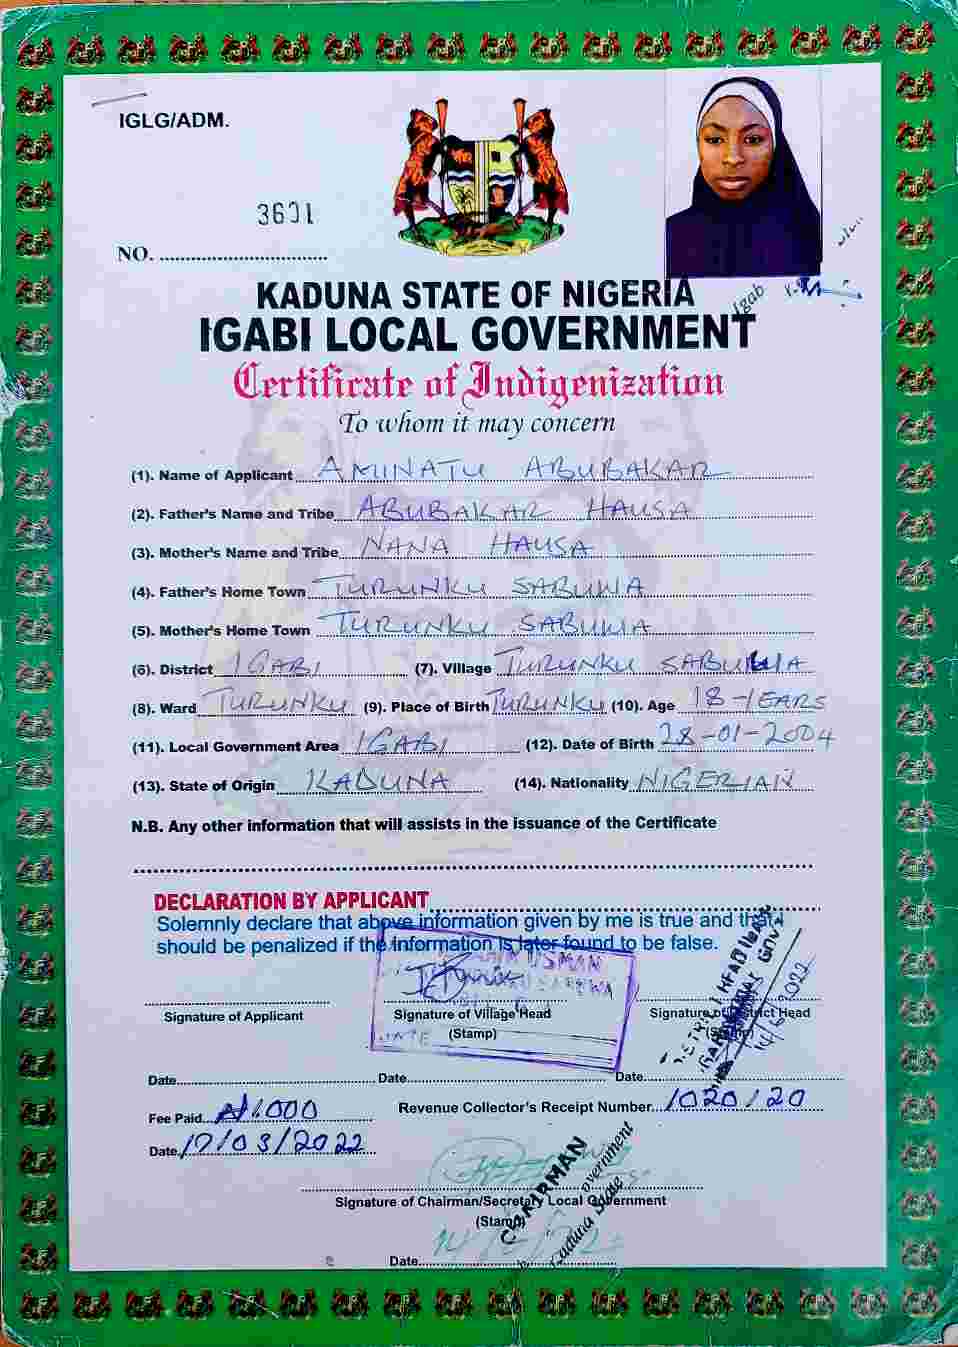 IGLG/ADM.
3601
NO. ................................
KADUNA STATE OF NIGERIA
IGABI LOCAL GOVERNMENT
Certificate of Indigenization
To whom it may concern
(1). Name of Applicant AMINATU ABUBAKAR
(2). Father's Name and Tribe ABUBAKAR HAUSA
(3). Mother's Name and Tribe NANA HAUSA
(4). Father's Home Town TURUNKU SABUWA
(5). Mother's Home Town TURUNKU SABUWA
(6). District IGABI (7). Village TURUNKU SABUWA
(8). Ward TURUNKU (9). Place of Birth TURUNKU (10). Age 18-YEARS
(11). Local Government Area IGABI (12). Date of Birth 28-01-2004
(13). State of Origin KADUNA (14). Nationality NIGERIAN
N.B. Any other information that will assists in the issuance of the Certificate
DECLARATION BY APPLICANT
Solemnly declare that above information given by me is true and that I
should be penalized if the information is later found to be false.
USMAN
Signature of Applicant Signature of Village Head Signature of District Head
(Stamp) (Stamp)
DATE
Date Date Date
Fee Paid ₦1000 Revenue Collector's Receipt Number 1020120
Date 17/03/2022
Signature of Chairman/Secretary Local Government
(Stamp)
CHAIRMAN
Kaduna State
Date